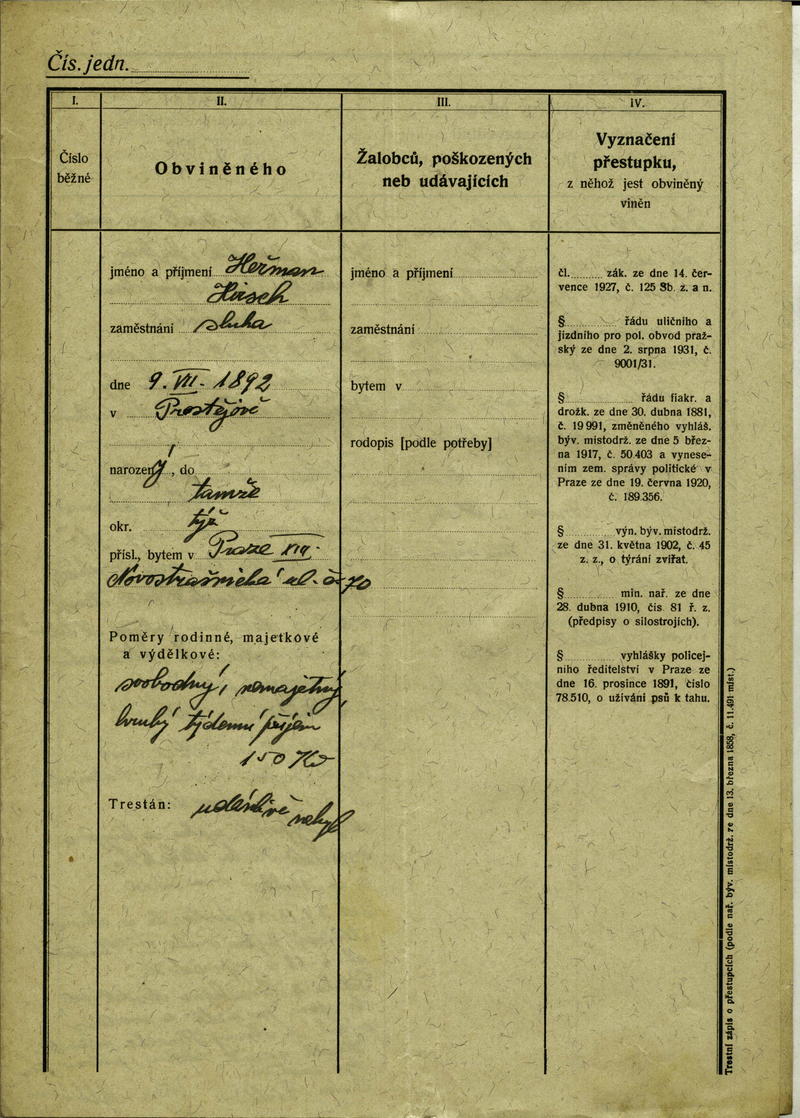 Čís. jedn.
I.
Číslo
běžné
II.
Obviněného
III.
Žalobců, poškozených
neb udávajících
IV.
Vyznačení
přestupku,
z něhož jest obviněný
vinēn
jméno a příjmení Heřman
zaměstnání sluha
dne 9. VII. 1892
v Prostějově
narozený, do
tamže
okr. týž
přísl., bytem v Praze
Poměry rodinné, majetkové
a výdělkové:
svobodný, nemajetný
hrubý týdenní příjem
150 Kč
Trestán:
jméno a příjmení
zaměstnání
bytem v
rodopis [podle potřeby]
čl. zák. ze dne 14. čer-
vence 1927, č. 125 Sb. z. a n.
§ řádu uličního a
jízdního pro pol. obvod praž-
ský ze dne 2. srpna 1931, č.
9001/31.
§ řádu fiakr. a
drožk. ze dne 30. dubna 1881,
č. 19 991, změněného vyhláš.
býv. místodrž. ze dne 5 břez-
na 1917, č. 50.403 a vynese-
ním zem. správy politické v
Praze ze dne 19. června 1920,
č. 189.356.
§ výn. býv. místodrž.
ze dne 31. května 1902, č. 45
z. z., o týrání zvířat.
§ min. nař. ze dne
28. dubna 1910, čís 81 ř. z.
(předpisy o silostrojích).
§ vyhlášky policej-
ního ředitelství v Praze ze
dne 16. prosince 1891, číslo
78.510, o užívání psů k tahu.
Trestní zápis o přestupcích (podle nař. býv. místodrž. ze dne 13. března 1858, č. 11.491 míst.)